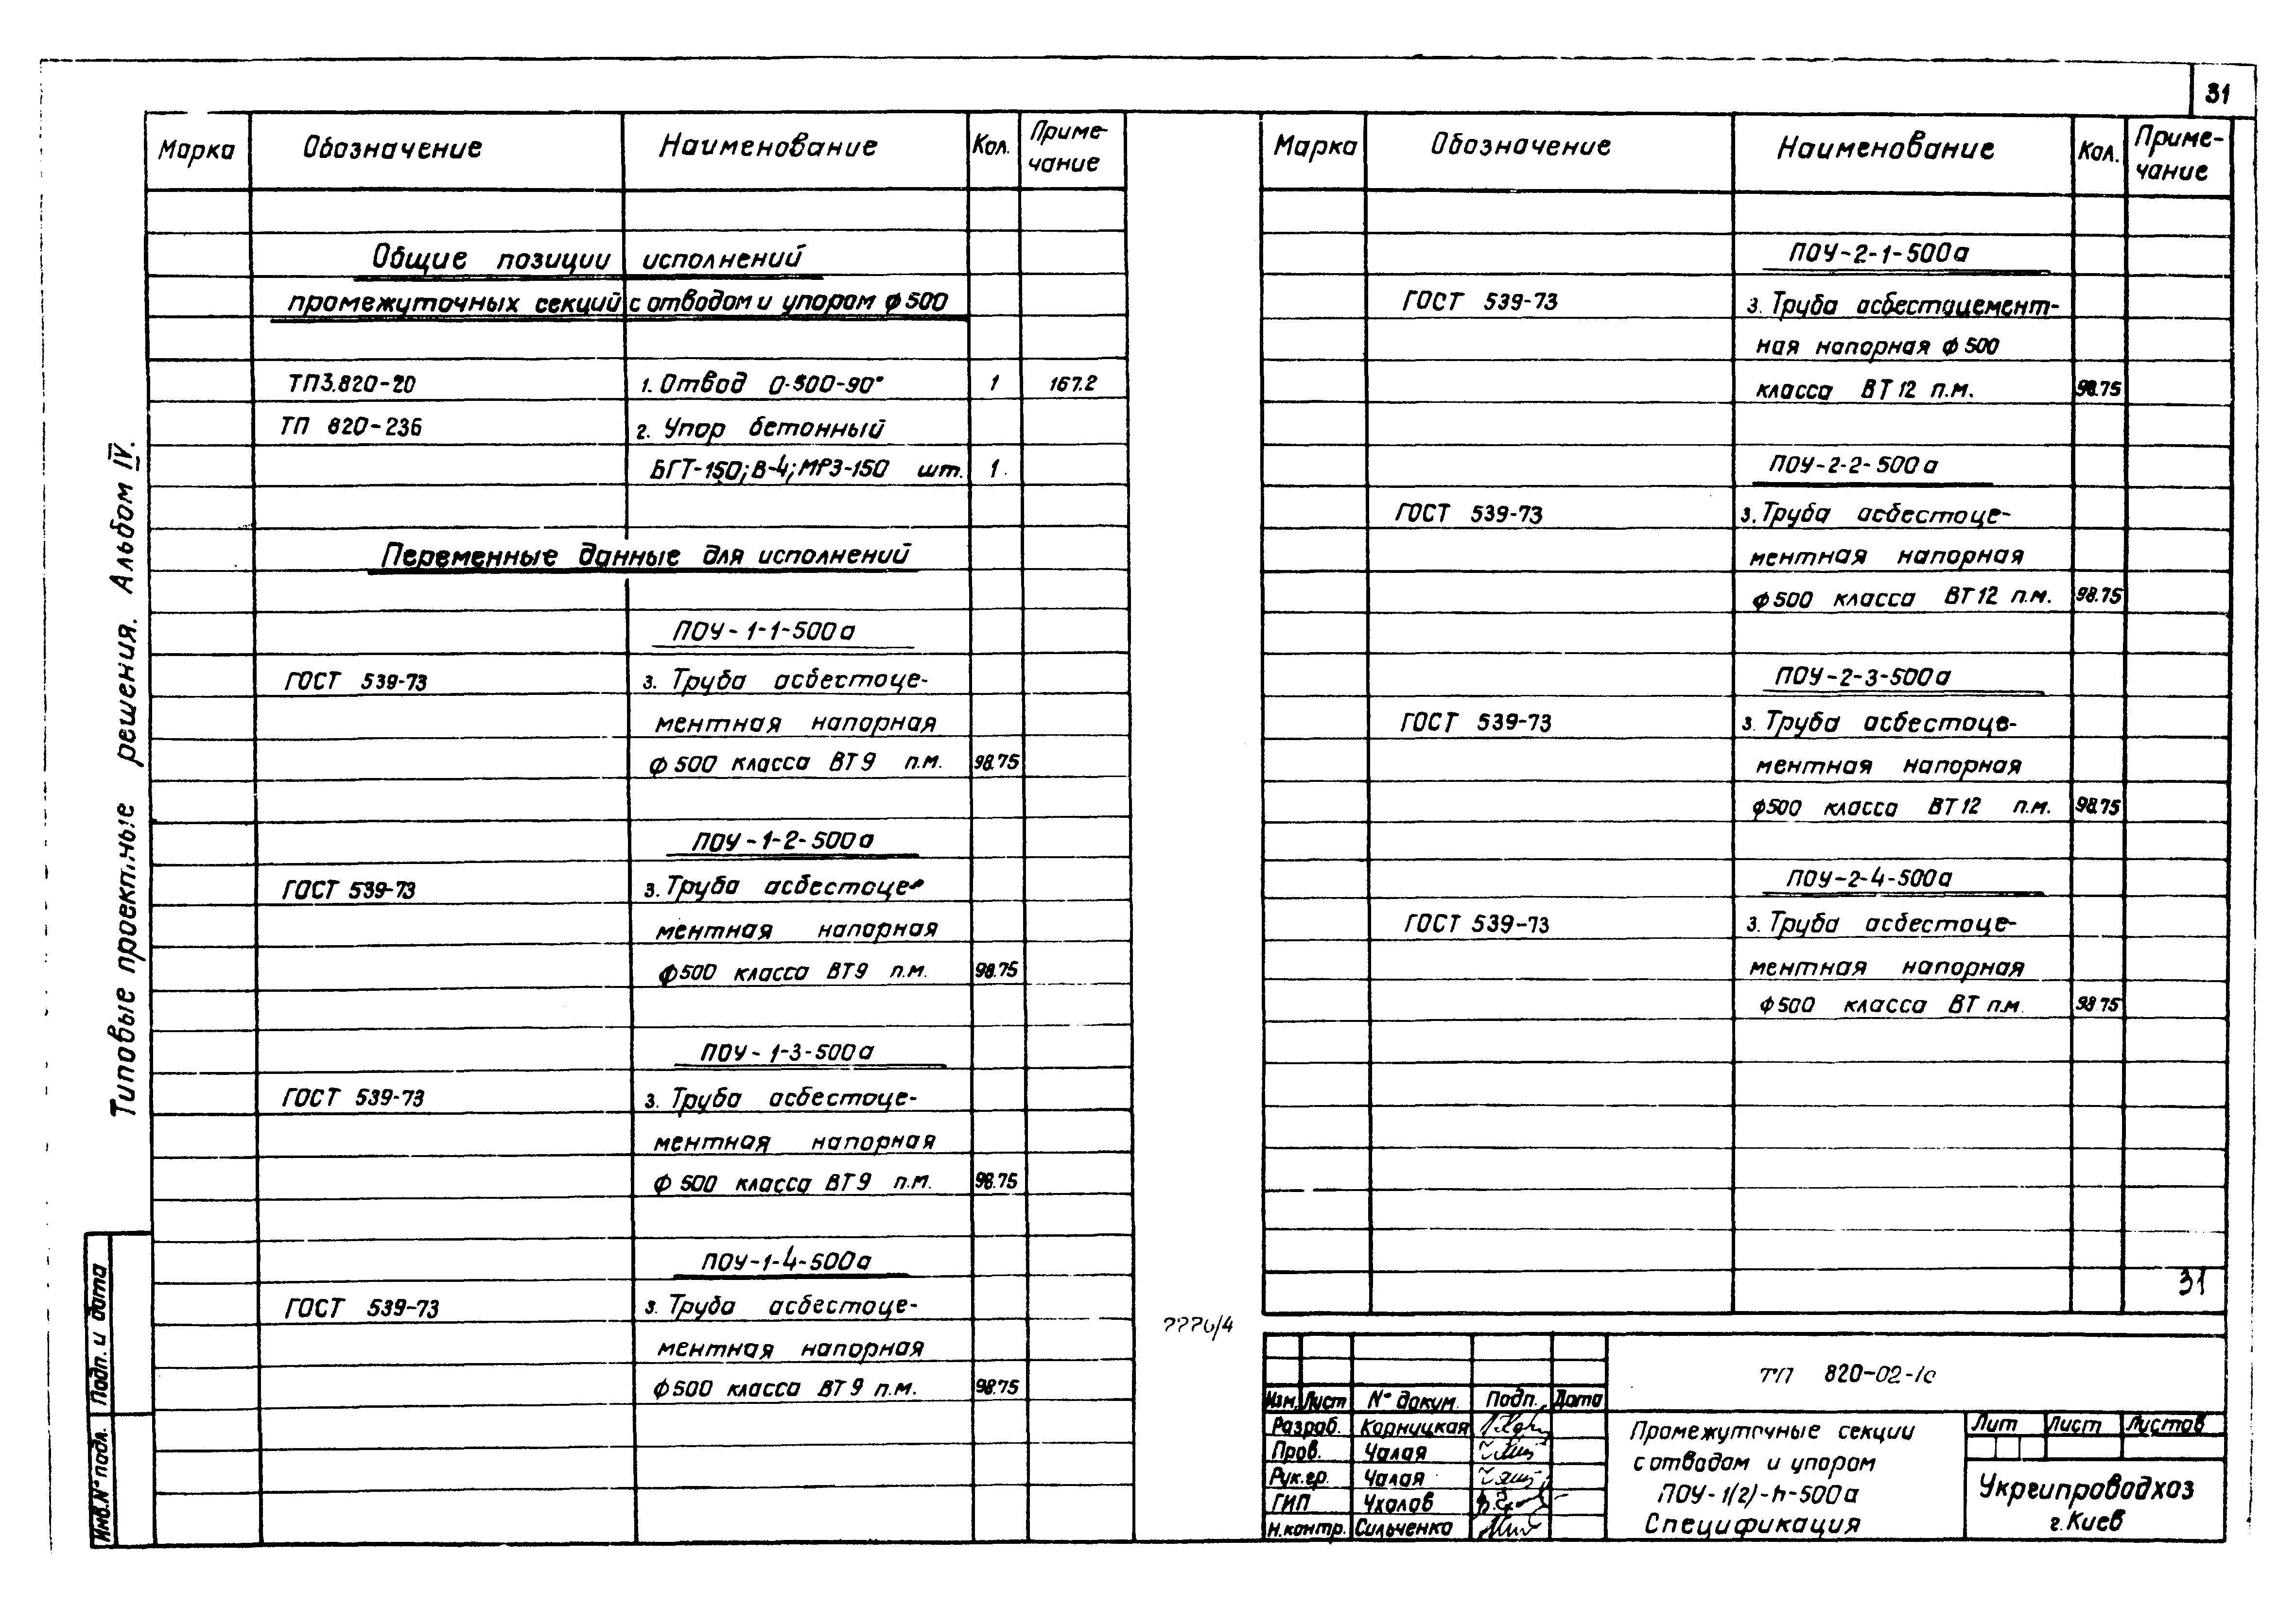 31
Марка Обозначение Наименование Кол. Приме-
чание
Общие позиции исполнений
промежуточных секций с отводом и упором ф500
ТП3.820-20 1. Отвод О-500-90° 1 167.2
ТП 820-236 2. Упор бетонный
БГТ-150; В-4; МРЗ-150 шт. 1
Переменные данные для исполнений
ПОУ-1-1-500а
ГОСТ 539-73 3. Труба асбестоце-
ментная напорная
ф500 класса ВТ9 п.м. 98.75
ПОУ-1-2-500а
ГОСТ 539-73 3. Труба асбестоце-
ментная напорная
ф500 класса ВТ9 п.м. 98.75
ПОУ-1-3-500а
ГОСТ 539-73 3. Труба асбестоце-
ментная напорная
ф500 класса ВТ9 п.м. 98.75
ПОУ-1-4-500а
ГОСТ 539-73 3. Труба асбестоце-
ментная напорная
ф500 класса ВТ9 п.м. 98.75
Типовые проектные решения. Альбом IV.
Подп. и дата
Инв. № подл.
Марка Обозначение Наименование Кол. Приме-
чание
ПОУ-2-1-500а
ГОСТ 539-73 3. Труба асбестоцемент-
ная напорная ф500
класса ВТ12 п.м. 98.75
ПОУ-2-2-500а
ГОСТ 539-73 3. Труба асбестоце-
ментная напорная
ф500 класса ВТ12 п.м. 98.75
ПОУ-2-3-500а
ГОСТ 539-73 3. Труба асбестоце-
ментная напорная
ф500 класса ВТ12 п.м. 98.75
ПОУ-2-4-500а
ГОСТ 539-73 3. Труба асбестоце-
ментная напорная
ф500 класса ВТ п.м. 98.75
31
ТП 820-02-
Изм. Лист № докум. Подп. Дата
Разраб. Корницкая
Пров. Чалая
Рук.гр. Чалая
ГИП Чхалов
Н.контр. Сильченко
Промежуточные секции
с отводом и упором
ПОУ-1(2)-h-500а
Спецификация
Лит Лист Листов
Укргипроводхоз
г. Киев